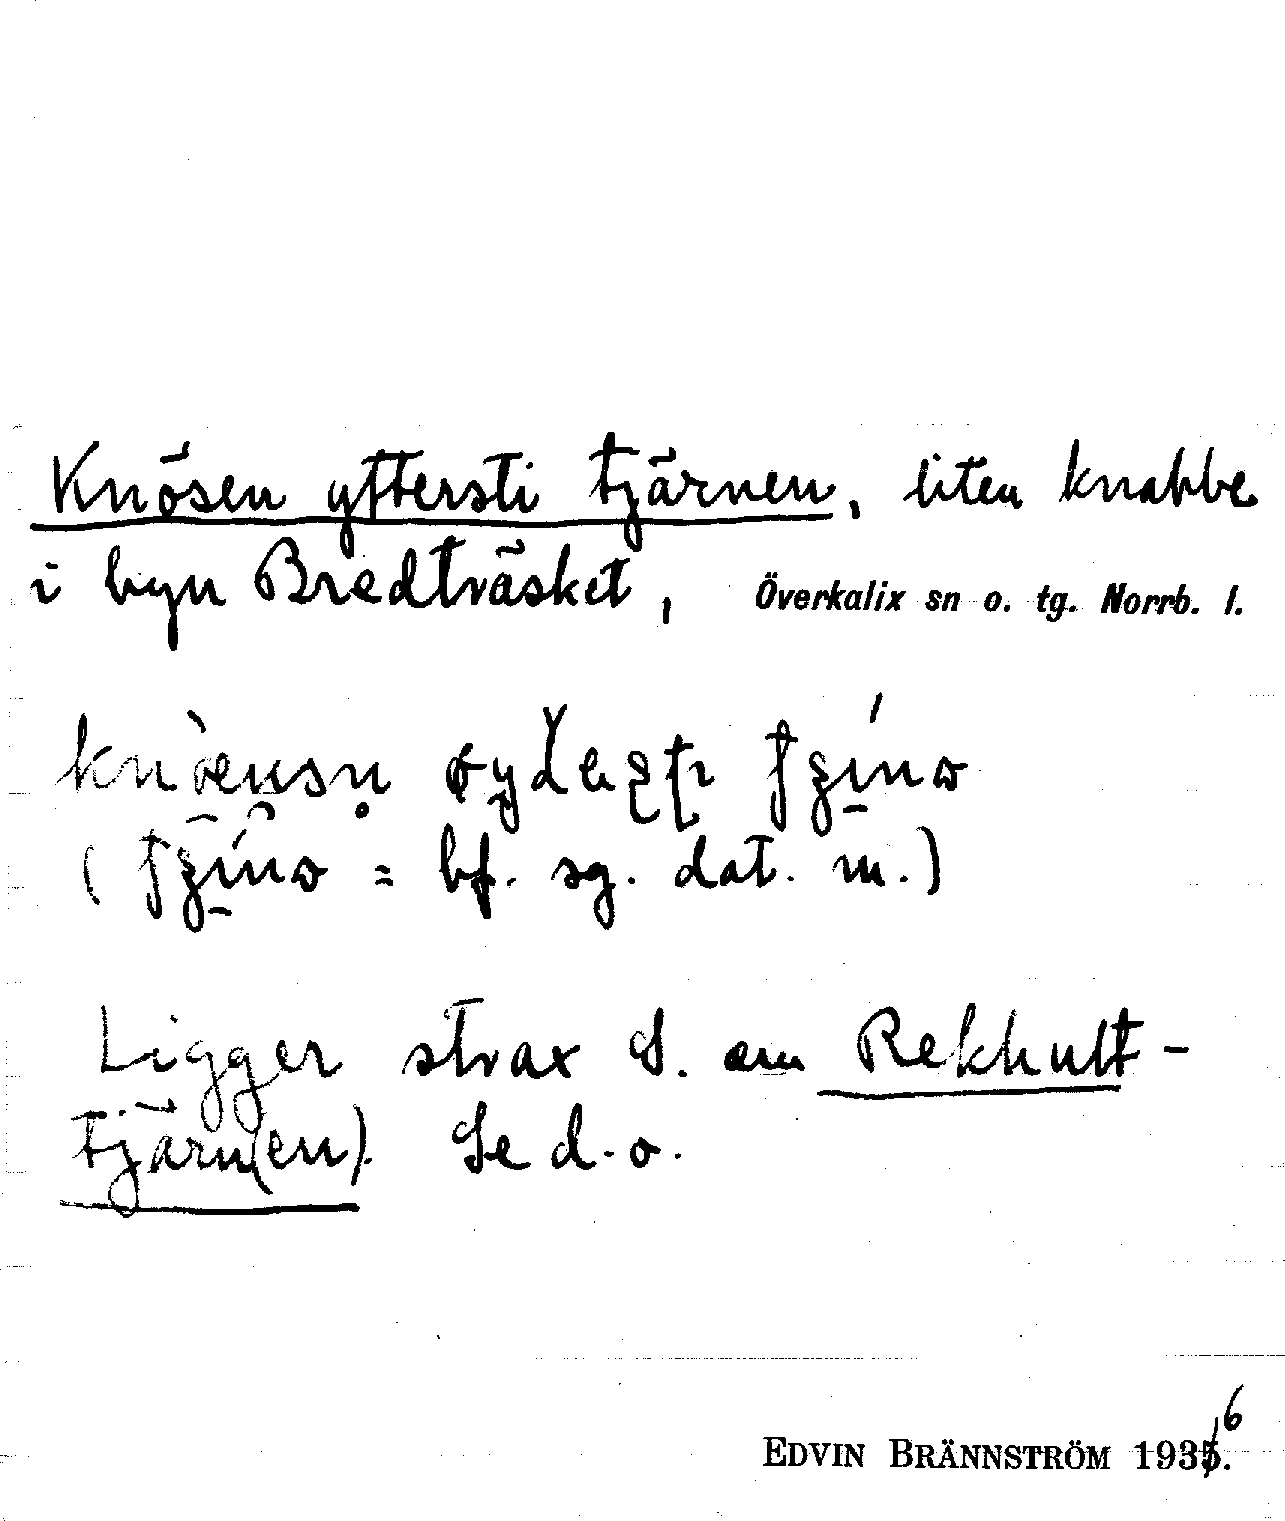 Knösen yttersti tjärnen, liten knabbe
i byn Bredträsket, Överkalix sn o. tg. Norrb. l.
= bf. sg. dat. m.)
Ligger strax S. om Rekhult-
tjärn(en). Se d.o.
EDVIN BRÄNNSTRÖM 1936.